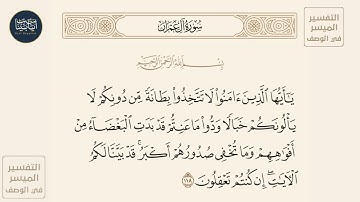 التفسير
الميسر
في الوصف
سُورَةُ آلِ عِمْرَانَ
بِسْمِ اللَّهِ الرَّحْمَٰنِ الرَّحِيمِ
يَٰٓأَيُّهَا ٱلَّذِينَ ءَامَنُوا۟ لَا تَتَّخِذُوا۟ بِطَانَةً مِّن دُونِكُمْ لَا
يَأْلُونَكُمْ خَبَالًا وَدُّوا۟ مَا عَنِتُّمْ قَدْ بَدَتِ ٱلْبَغْضَآءُ مِنْ
أَفْوَٰهِهِمْ وَمَا تُخْفِى صُدُورُهُمْ أَكْبَرُ ۚ قَدْ بَيَّنَّا لَكُمُ
ٱلْءَايَٰتِ ۖ إِن كُنتُمْ تَعْقِلُونَ ١١٨
التفسير
الميسر
في الوصف